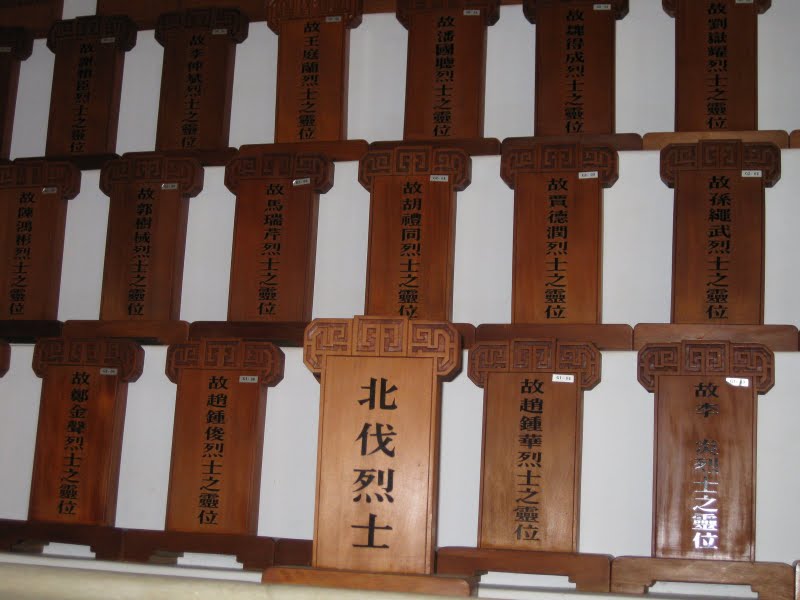 故謝懷臣烈士之靈位
故李仲斌烈士之靈位
故王庭蘭烈士之靈位
故潘國聰烈士之靈位
故魏得成烈士之靈位
故劉嶽耀烈士之靈位
故陳鴻彬烈士之靈位
故郭樹棫烈士之靈位
故馬瑞芹烈士之靈位
故胡禮同烈士之靈位
故賈德潤烈士之靈位
故孫繩武烈士之靈位
故鄭金聲烈士之靈位
故趙鍾俊烈士之靈位
北伐烈士
故趙鍾華烈士之靈位
故李 炎烈士之靈位